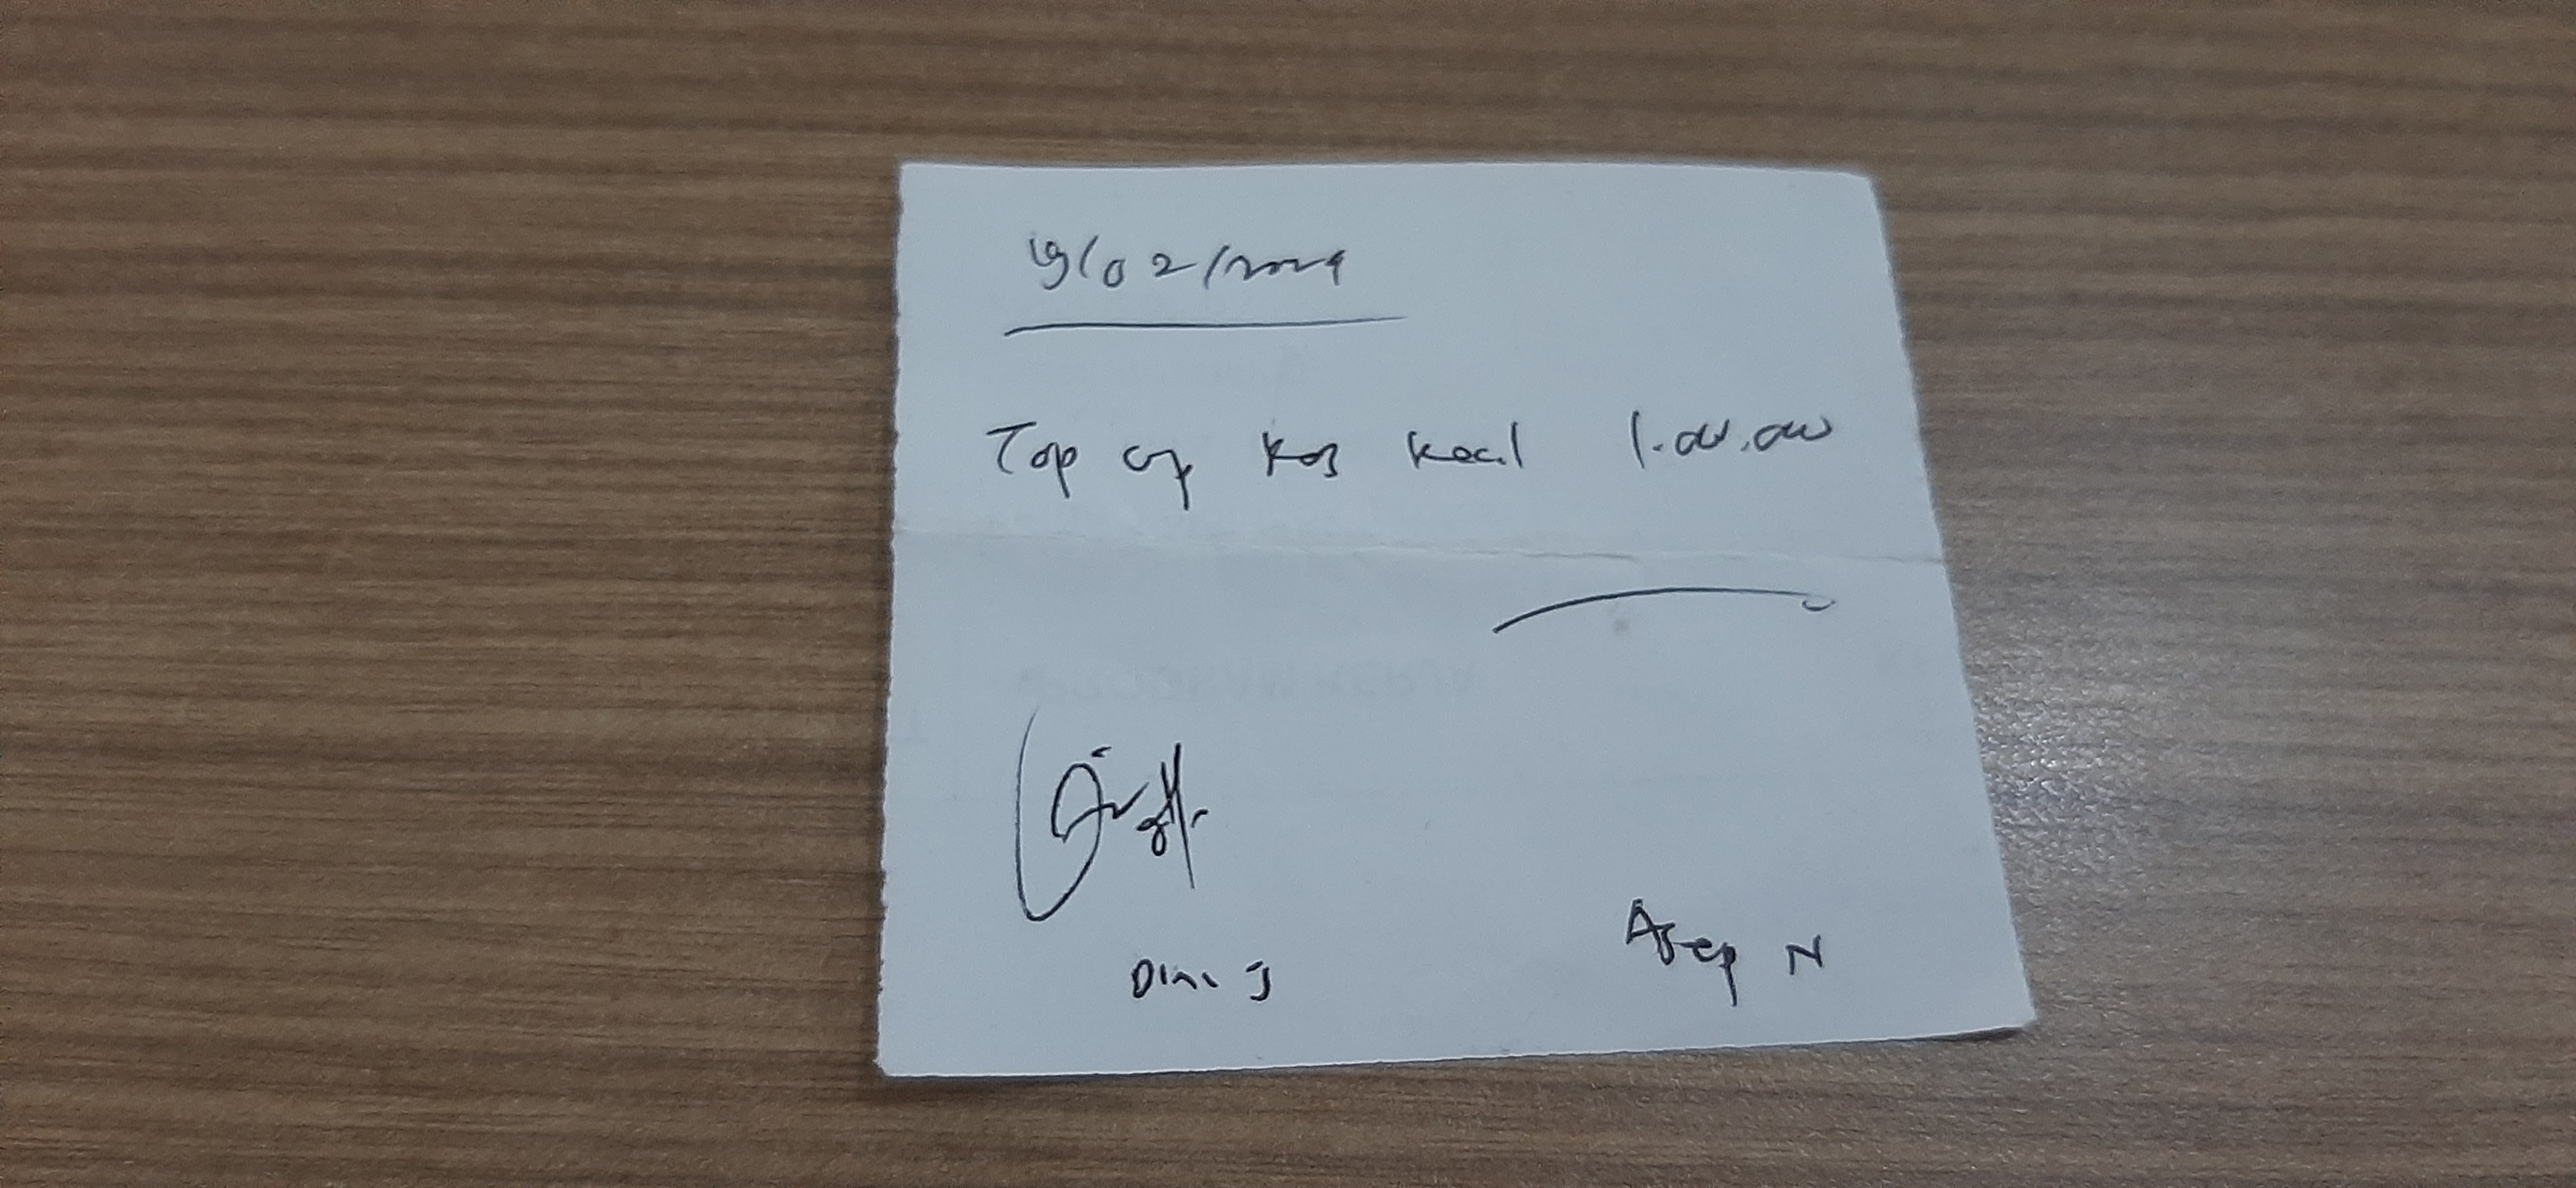 19/02/2024
Top up kas kecil 1.000.000
Dini J
Asep N